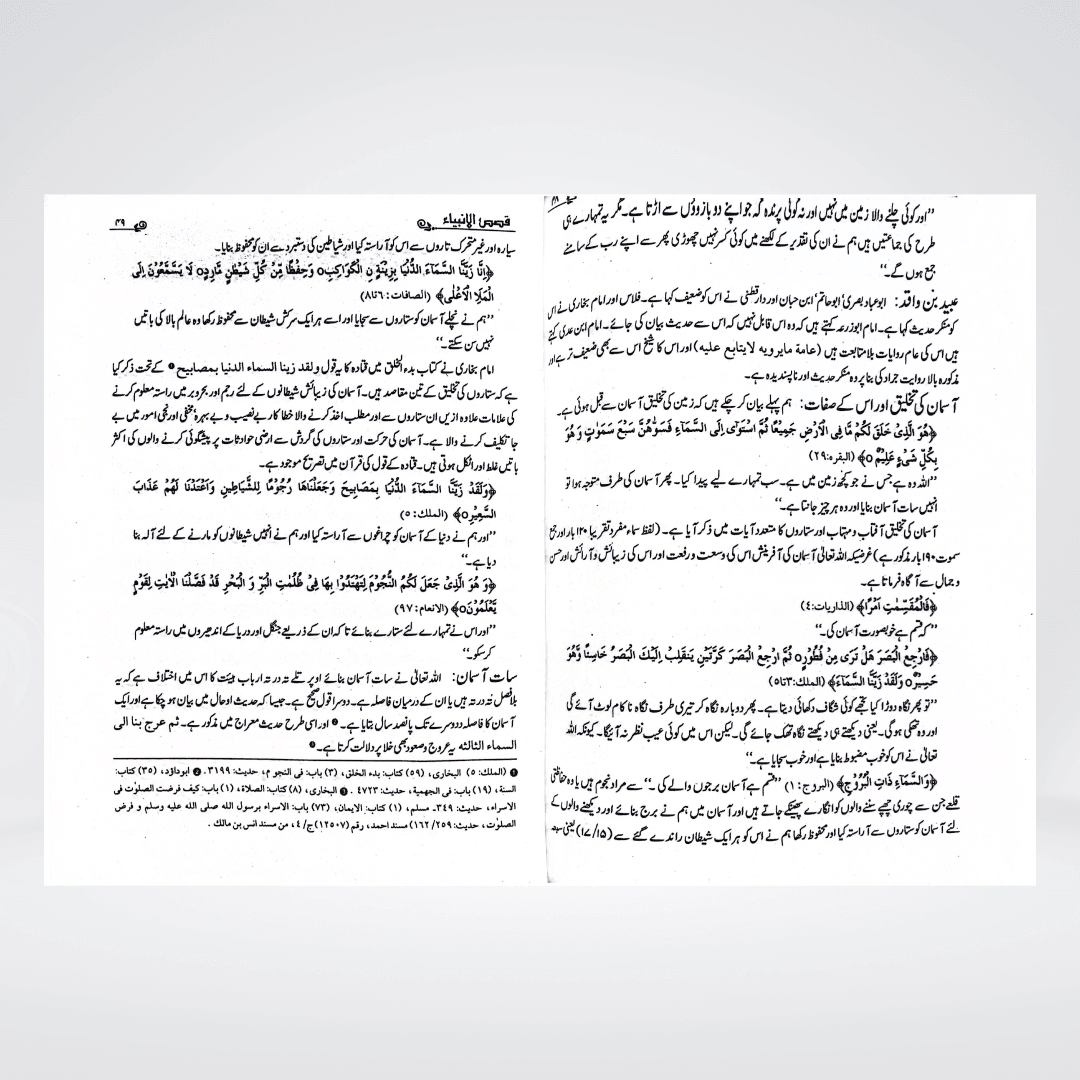 ”اور کوئی چلنے والا زمین میں نہیں اور نہ کوئی پرندہ کہ جو اپنے دو بازوؤں سے اڑتا ہے۔ مگر یہ تمہارے ہی
طرح کی جماعتیں ہیں ہم نے ان کی تقدیر کے لکھنے میں کوئی کسر نہیں چھوڑی پھر سے اپنے رب کے سامنے
جمع ہوں گے۔“
عبید بن واقد: ابو عباد بصری‘ ابو حاتم‘ ابن حبان اور دارقطنی نے اس کو ضعیف کہا ہے۔ فلاس اور امام بخاری نے اس
کو منکر حدیث کہا ہے۔ امام ابو زرعہ کہتے ہیں کہ وہ اس قابل نہیں کہ اس سے حدیث بیان کی جائے۔ امام ابن عدی کہتے
ہیں اس کی عام روایات بلا متابعت ہیں (عامة مايرويه لا يتابع عليه) اور اس کا شیخ اس سے بھی ضعیف تر ہے اور
مذکورہ بالا روایت جراد کی بنا پر وہ منکر حدیث اور ناپسندیدہ ہے۔
آسمان کی تخلیق اور اس کے صفات: ہم پہلے بیان کر چکے ہیں کہ زمین کی تخلیق آسمان سے قبل ہوئی ہے۔
﴿هُوَ الَّذِیْ خَلَقَ لَكُمْ مَّا فِی الْاَرْضِ جَمِیْعًا ثُمَّ اسْتَوٰۤى اِلَى السَّمَآءِ فَسَوّٰىهُنَّ سَبْعَ سَمٰوٰتٍ وَهُوَ
بِكُلِّ شَیْءٍ عَلِیْمٌo﴾ (البقرہ:۲۹)
”اللہ وہ ہے جس نے جو کچھ زمین میں ہے۔ سب تمہارے لیے پیدا کیا۔ پھر آسمان کی طرف متوجہ ہوا تو
انہیں سات آسمان بنایا اور وہ ہر چیز جانتا ہے۔“
آسمان کی تخلیق آفتاب و مہتاب اور ستاروں کا متعدد آیات میں ذکر آیا ہے۔ (لفظ سماء مفرد تقریبا ۱۲۰ بار اور جمع
سموت ۱۹۰ بار مذکور ہے) غرضیکہ اللہ تعالیٰ آسمان کی آفرینش اس کی وسعت و رفعت اور اس کی زیبائش و آرائش اور حسن
و جمال سے آگاہ فرماتا ہے۔
﴿فَالْمُقَسِّمٰتِ اَمْرًا﴾ (الذاریات:٤)
”کہ قسم ہے خوبصورت آسمان کی۔“
﴿فَارْجِعِ الْبَصَرَ هَلْ تَرٰى مِنْ فُطُوْرٍo ثُمَّ ارْجِعِ الْبَصَرَ كَرَّتَیْنِ یَنْقَلِبْ اِلَیْكَ الْبَصَرُ خَاسِئًا وَّهُوَ
حَسِیْرٌo وَلَقَدْ زَیَّنَّا السَّمَآءَ﴾ (الملک:۳تا۵)
”تو پھر نگاہ دوڑا کیا تجھے کوئی شگاف دکھائی دیتا ہے۔ پھر دوبارہ نگاہ کر تیری طرف نگاہ ناکام لوٹ آئے گی
اور وہ تھکی ہو گی۔ یعنی دیکھتے ہی دیکھتے نگاہ تھک جائے گی۔ لیکن اس میں کوئی عیب نظر نہ آئیگا۔ کیونکہ اللہ
تعالیٰ نے اس کو خوب مضبوط بنایا ہے اور خوب سجایا ہے۔“
﴿وَالسَّمَآءِ ذَاتِ الْبُرُوْجِ﴾ (البروج:۱) ”قسم ہے آسمان برجوں والے کی۔“ سے مراد نجوم ہیں یا وہ حفاظتی
قلعے جن سے چوری چھپے سننے والوں کو انگارے پھینکے جاتے ہیں اور آسمان میں ہم نے برج بنائے اور دیکھنے والوں کے
لئے آسمان کو ستاروں سے آراستہ کیا اور محفوظ رکھا ہم نے اس کو ہر ایک شیطان راندے گئے سے (۱۷/۱۵) یعنی سبعہ
قصص الانبیاء ۴۹
سیارہ اور غیر متحرک تاروں سے اس کو آراستہ کیا اور شیاطین کی دستبرد سے ان کو محفوظ بنایا۔
﴿اِنَّا زَیَّنَّا السَّمَآءَ الدُّنْیَا بِزِیْنَةِ نِ الْكَوَاكِبِo وَحِفْظًا مِّنْ كُلِّ شَیْطٰنٍ مَّارِدٍo لَا یَسَّمَّعُوْنَ اِلَى
الْمَلَاِ الْاَعْلٰى﴾ (الصافات:۶تا۸)
”ہم نے نچلے آسمان کو ستاروں سے سجایا اور اسے ہر ایک سرکش شیطان سے محفوظ رکھا وہ عالم بالا کی باتیں
نہیں سن سکتے۔“
امام بخاری نے کتاب بدء الخلق میں قتادہ کا یہ قول ولقد زينا السماء الدنيا بمصابيح ❶ کے تحت ذکر کیا
ہے کہ ستاروں کی تخلیق کے تین مقاصد ہیں۔ آسمان کی زیبائش شیطانوں کے لئے رجم اور بحر و بر میں راستہ معلوم کرنے
کی علامات علاوہ ازیں ان ستاروں سے اور مطلب اخذ کرنے والا خطا کار بے نصیب و بے بہرہ مخفی اور نجی امور میں بے
جا تکلیف کرنے والا ہے۔ آسمان کی حرکت اور ستاروں کی گردش سے ارضی حوادثات پر پیشگوئی کرنے والوں کی اکثر
باتیں غلط اور اٹکل ہوتی ہیں۔ قتادہ کے قول کی قرآن میں تصریح موجود ہے۔
﴿وَلَقَدْ زَیَّنَّا السَّمَآءَ الدُّنْیَا بِمَصَابِیْحَ وَجَعَلْنَاهَا رُجُوْمًا لِلشَّیَاطِیْنِ وَاَعْتَدْنَا لَهُمْ عَذَابَ
السَّعِیْرِo﴾ (الملک:۵)
”اور ہم نے دنیا کے آسمان کو چراغوں سے آراستہ کیا اور ہم نے انہیں شیطانوں کو مارنے کے لئے آلہ بنا
دیا ہے۔“
﴿وَ هُوَ الَّذِیْ جَعَلَ لَكُمُ النُّجُوْمَ لِتَهْتَدُوْا بِهَا فِیْ ظُلُمٰتِ الْبَرِّ وَ الْبَحْرِ قَدْ فَصَّلْنَا الْاٰیٰتِ لِقَوْمٍ
یَّعْلَمُوْنَo﴾ (الانعام:۹۷)
”اور اس نے تمہارے لئے ستارے بنائے تاکہ ان کے ذریعے جنگل اور دریا کے اندھیروں میں راستہ معلوم
کر سکو۔“
سات آسمان: اللہ تعالیٰ نے سات آسمان بنائے اوپر تلے تہ در تہ ارباب ہیئت کا اس میں اختلاف ہے کہ یہ
بلافصل تہ در تہ ہیں یا ان کے درمیان فاصلہ ہے۔ دوسرا قول صحیح ہے۔ جیسا کہ حدیث اوعال میں بیان ہو چکا ہے اور ایک
آسمان کا فاصلہ دوسرے تک پانصد سال بتایا ہے۔ ❷ اور اسی طرح حدیث معراج میں مذکور ہے۔ ثم عرج بنا الى
السماء الثالثه یہ عروج و صعود بھی خلا پر دلالت کرتا ہے۔ ❸
❶ (الملک:۵) البخاری، (۵۹) کتاب: بدء الخلق، (۳) باب: فی النجوم، حدیث: ۳۱۹۹۔ ❷ ابوداؤد، (۳۵) کتاب:
السنة، (۱۹) باب: فی الجهمیة، حدیث: ۴۷۲۳۔ ❸ البخاری، (۸) کتاب: الصلاة، (۱) باب: کیف فرضت الصلوٰت فی
الاسراء، حدیث: ۳۴۹۔ مسلم، (۱) کتاب: الایمان، (۷۳) باب: الاسراء برسول اللہ صلی اللہ علیہ وسلم و فرض
الصلوٰت، حدیث: ۱۶۲/۲۵۹ مسند احمد، رقم (۱۲۵۰۷) ج/۴، من مسند انس بن مالک۔